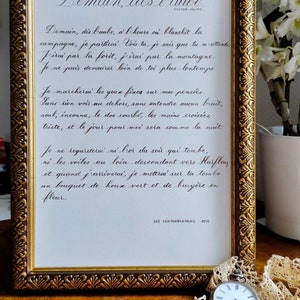 Demain, dès l'aube
VICTOR HUGO
Demain, dès l'aube, à l'heure où blanchit la
campagne, je partirai. Vois-tu, je sais que tu m'attends
J'irai par la forêt, j'irai par la montagne
Je ne puis demeurer loin de toi plus longtemps.
Je marcherai les yeux fixés sur mes pensées
Sans rien voir au dehors, sans entendre aucun bruit,
seul, inconnu, le dos courbé, les mains croisées
triste, et le jour pour moi sera comme la nuit.
Je ne regarderai ni l'or du soir qui tombe,
ni les voiles au loin descendant vers Harfleur
et quand j'arriverai, je mettrai sur ta tombe
un bouquet de houx vert et de bruyère en
fleur.
LES CONTEMPLATIONS,